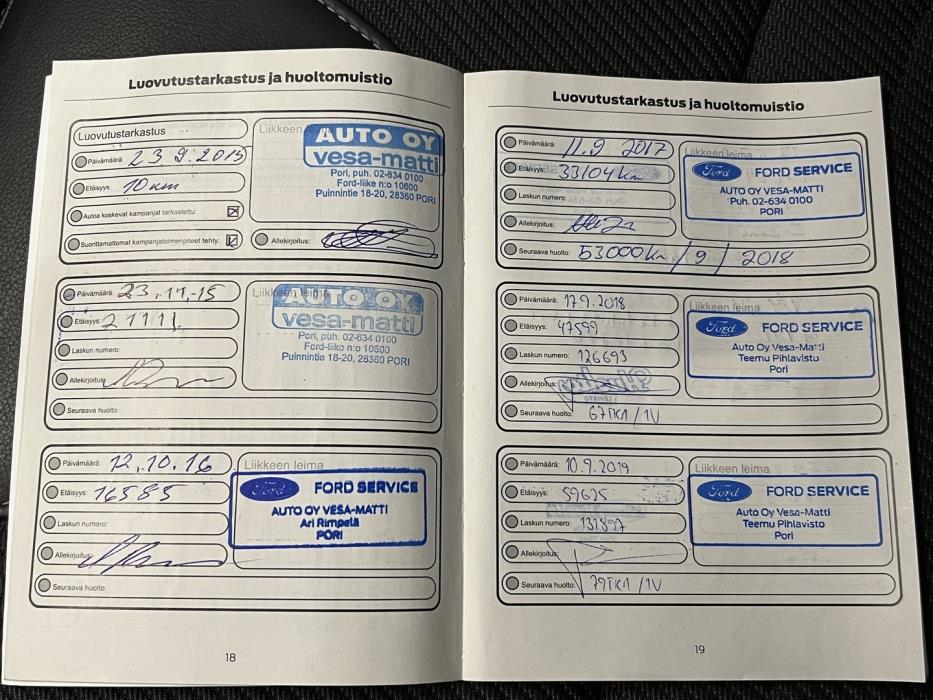 Luovutustarkastus ja huoltomuistio
Luovutustarkastus
Päivämäärä: 23.9.2015
Etäisyys: 10 km
Autoa koskevat kampanjat tarkastettu:
Suorittamattomat kampanjatoimenpiteet tehty:
Allekirjoitus:
Liikkeen leima
AUTO OY
vesa-matti
Pori, puh. 02-634 0100
Ford-liike n:o 10600
Puinnintie 18-20, 28360 PORI
Päivämäärä: 23.11.-15
Etäisyys: 21111
Laskun numero:
Allekirjoitus:
Seuraava huolto:
Liikkeen leima
AUTO OY
vesa-matti
Pori, puh. 02-634 0100
Ford-liike n:o 10600
Puinnintie 18-20, 28360 PORI
Päivämäärä: 12.10.16
Etäisyys: 16585
Laskun numero:
Allekirjoitus:
Seuraava huolto:
Liikkeen leima
Ford FORD SERVICE
AUTO OY VESA-MATTI
Ari Rimpelä
PORI
18
Luovutustarkastus ja huoltomuistio
Päivämäärä: 11.9 2017
Etäisyys: 33104 km
Laskun numero:
Allekirjoitus:
Seuraava huolto: 53000 km / 9 / 2018
Liikkeen leima
Ford FORD SERVICE
AUTO OY VESA-MATTI
Puh. 02-634 0100
PORI
Päivämäärä: 17.9.2018
Etäisyys: 47599
Laskun numero: 126693
Allekirjoitus:
Seuraava huolto: 67TKM/1V
Liikkeen leima
Ford FORD SERVICE
Auto Oy Vesa-Matti
Teemu Pihlavisto
Pori
Päivämäärä: 10.9.2019
Etäisyys: 59625
Laskun numero: 131897
Allekirjoitus:
Seuraava huolto: 79TKM/1V
Liikkeen leima
Ford FORD SERVICE
Auto Oy Vesa-Matti
Teemu Pihlavisto
Pori
19